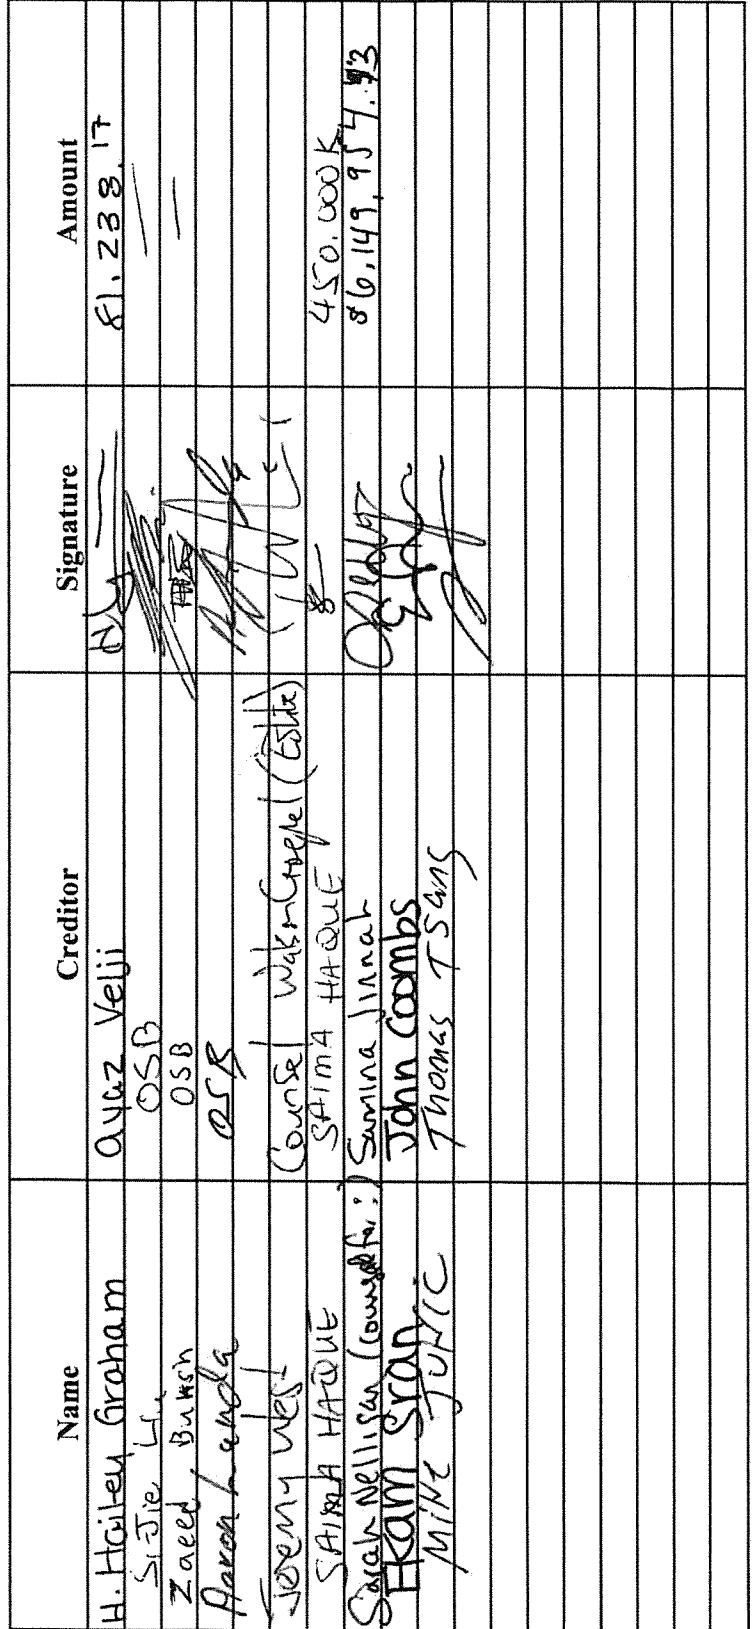 Name Creditor Signature Amount
H. Hailey Graham Ayaz Velji 81,238.17
Si Jie Li OSB —
Zaeed, Buksh OSB —
Aaron Landa OSB
Jeremy West Counsel (Estate)
SAIMA HAQUE SAIMA HAQUE 450.000K
Sarah Nelligan (counsel for:) Samina Jinnah 86,149,954.93
Ekam Sran John Coombs
MIKE JURIC THOMAS TSANG